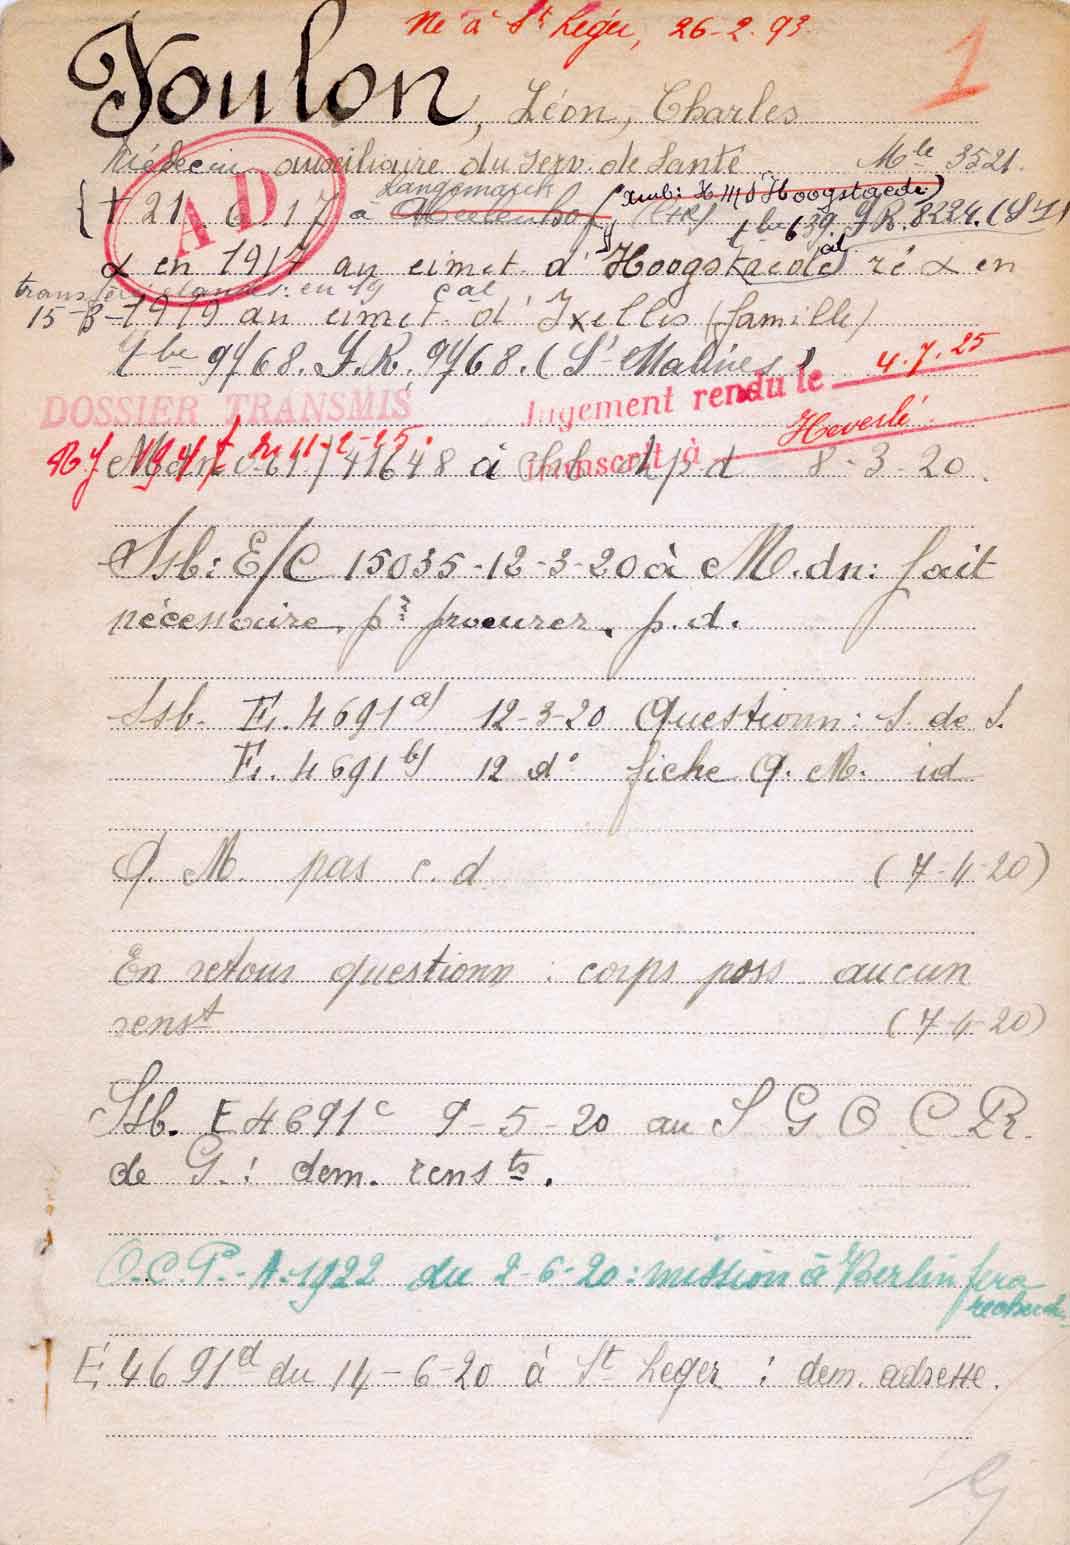 Né à St Léger, 26-2-93
1
Toulon, Léon, Charles
Médecin auxiliaire du serv. de Santé Mle 3521
Langemarck (amb: H M d'Hoogstaede)
{ † 21. 6. 17 à J.R. 8224. (
AD
α en 1917 au cimet. d'Hoogstaede ré α en
en 19 cal
15-3-1919 au cimet. d'Ixelles (famille)
9468. J.R. 9468. (St Malines)
DOSSIER TRANSMIS
Jugement rendu le 4.7.25
transcrit à Heverlé
11-2-25.
à 8-3-20.
Ssb: E/C 15035-12-3-20 à M.dn: fait
nécessaire pr procurer p.d.
Ssb. E. 4691 a) 12-3-20 Questionn: S. de S.
E. 4691 b) 12 d° fiche Q. M. id
Q. M. pas c. d (7-4-20)
En retour questionn: corps poss aucun
renst (7-4-20)
Ssb. E 4691 c 9-5-20 au S G O C P R.
de G.: dem. rensts.
O.C.P.- A.1922 du 2-6-20: mission à Berlin fera
recherch.
E 4691 d du 14-6-20 à St Leger: dem. adresse.